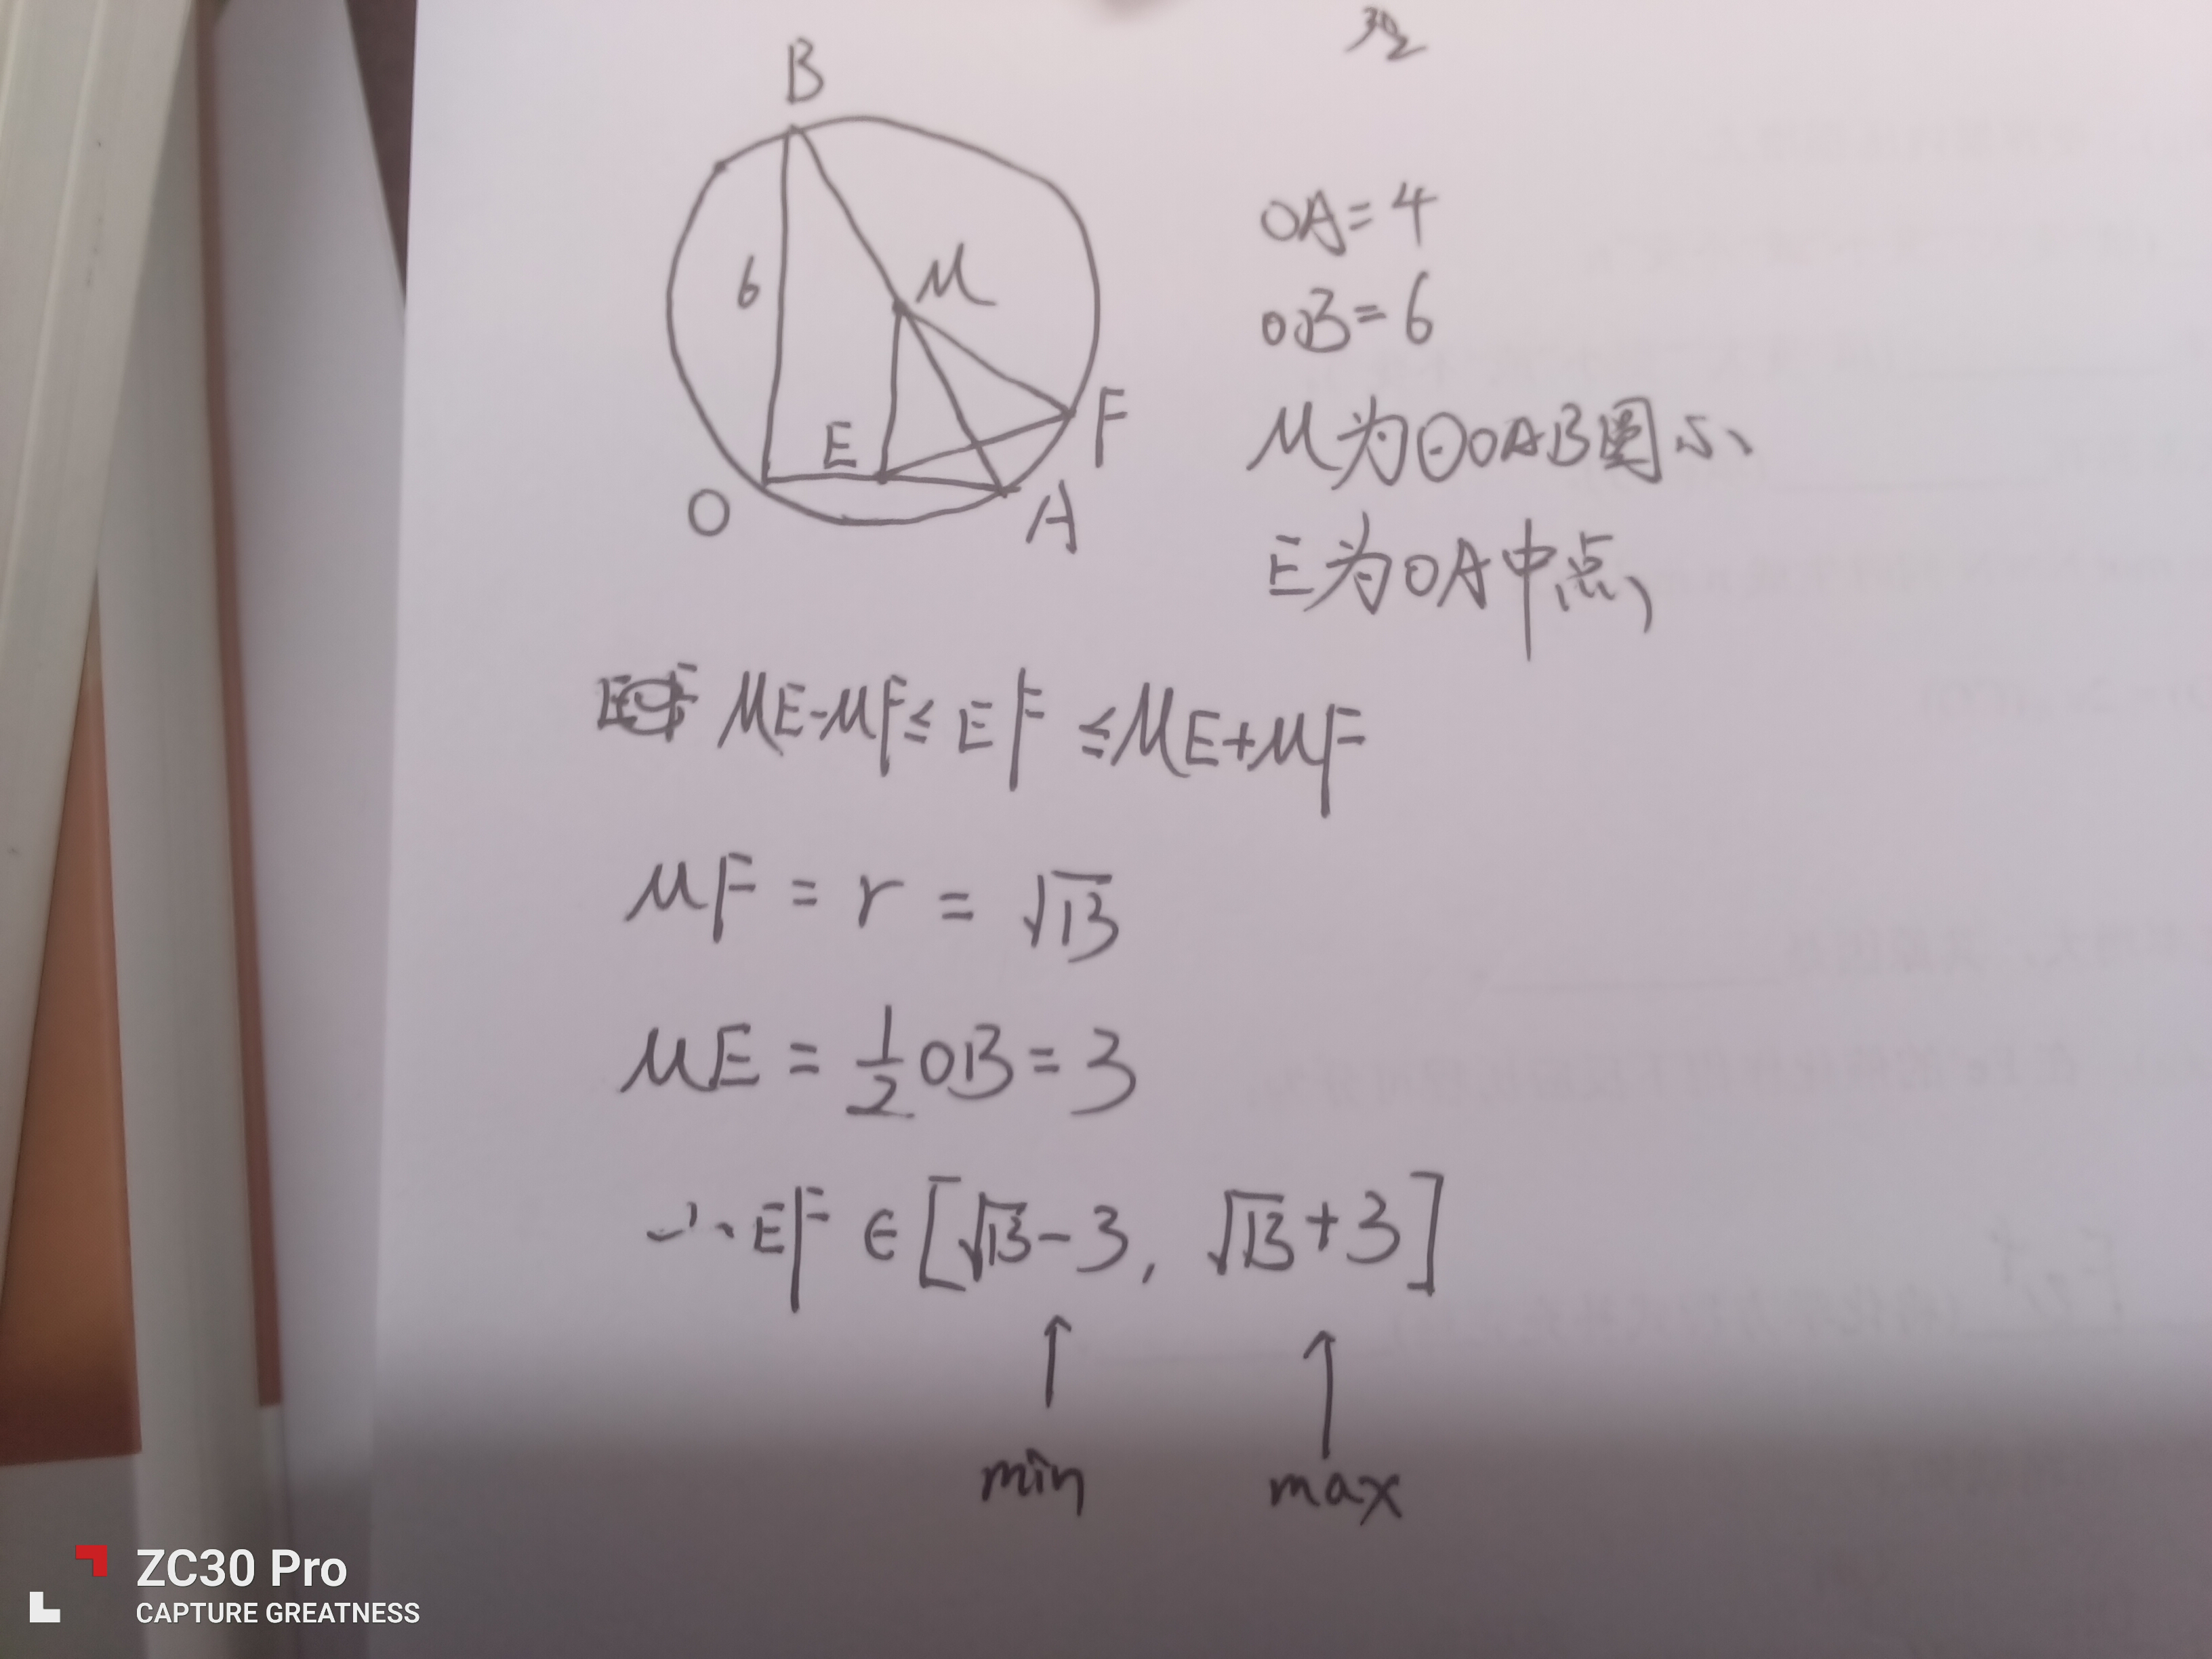 B
6
M
E
F
O
A
OA=4
OB=6
M为⊙OAB圆心
E为OA中点
ME-MF≤EF≤ME+MF
MF=r=√13
ME=1/2OB=3
∴EF∈[√13-3, √13+3]
↑ ↑
min max
ZC30 Pro
CAPTURE GREATNESS